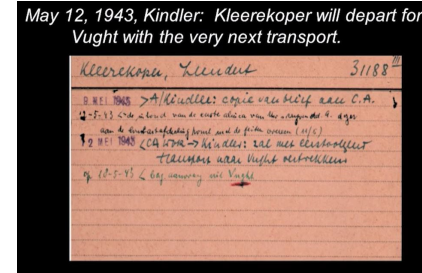 May 12, 1943, Kindler: Kleerekoper will depart for
Vught with the very next transport.
Kleerekoper, Leendert 31188 III
9 MEI 1943 > A/Kindler: copie van brief aan C.A.
12-5-43 de inhoud van de eerste alinea van
aan de
12 MEI 1943 < CA Kindler: zal met eerstvolgent
transport naar Vught vertrekken
op 20-5-43 < bag aanvrag uit Vught